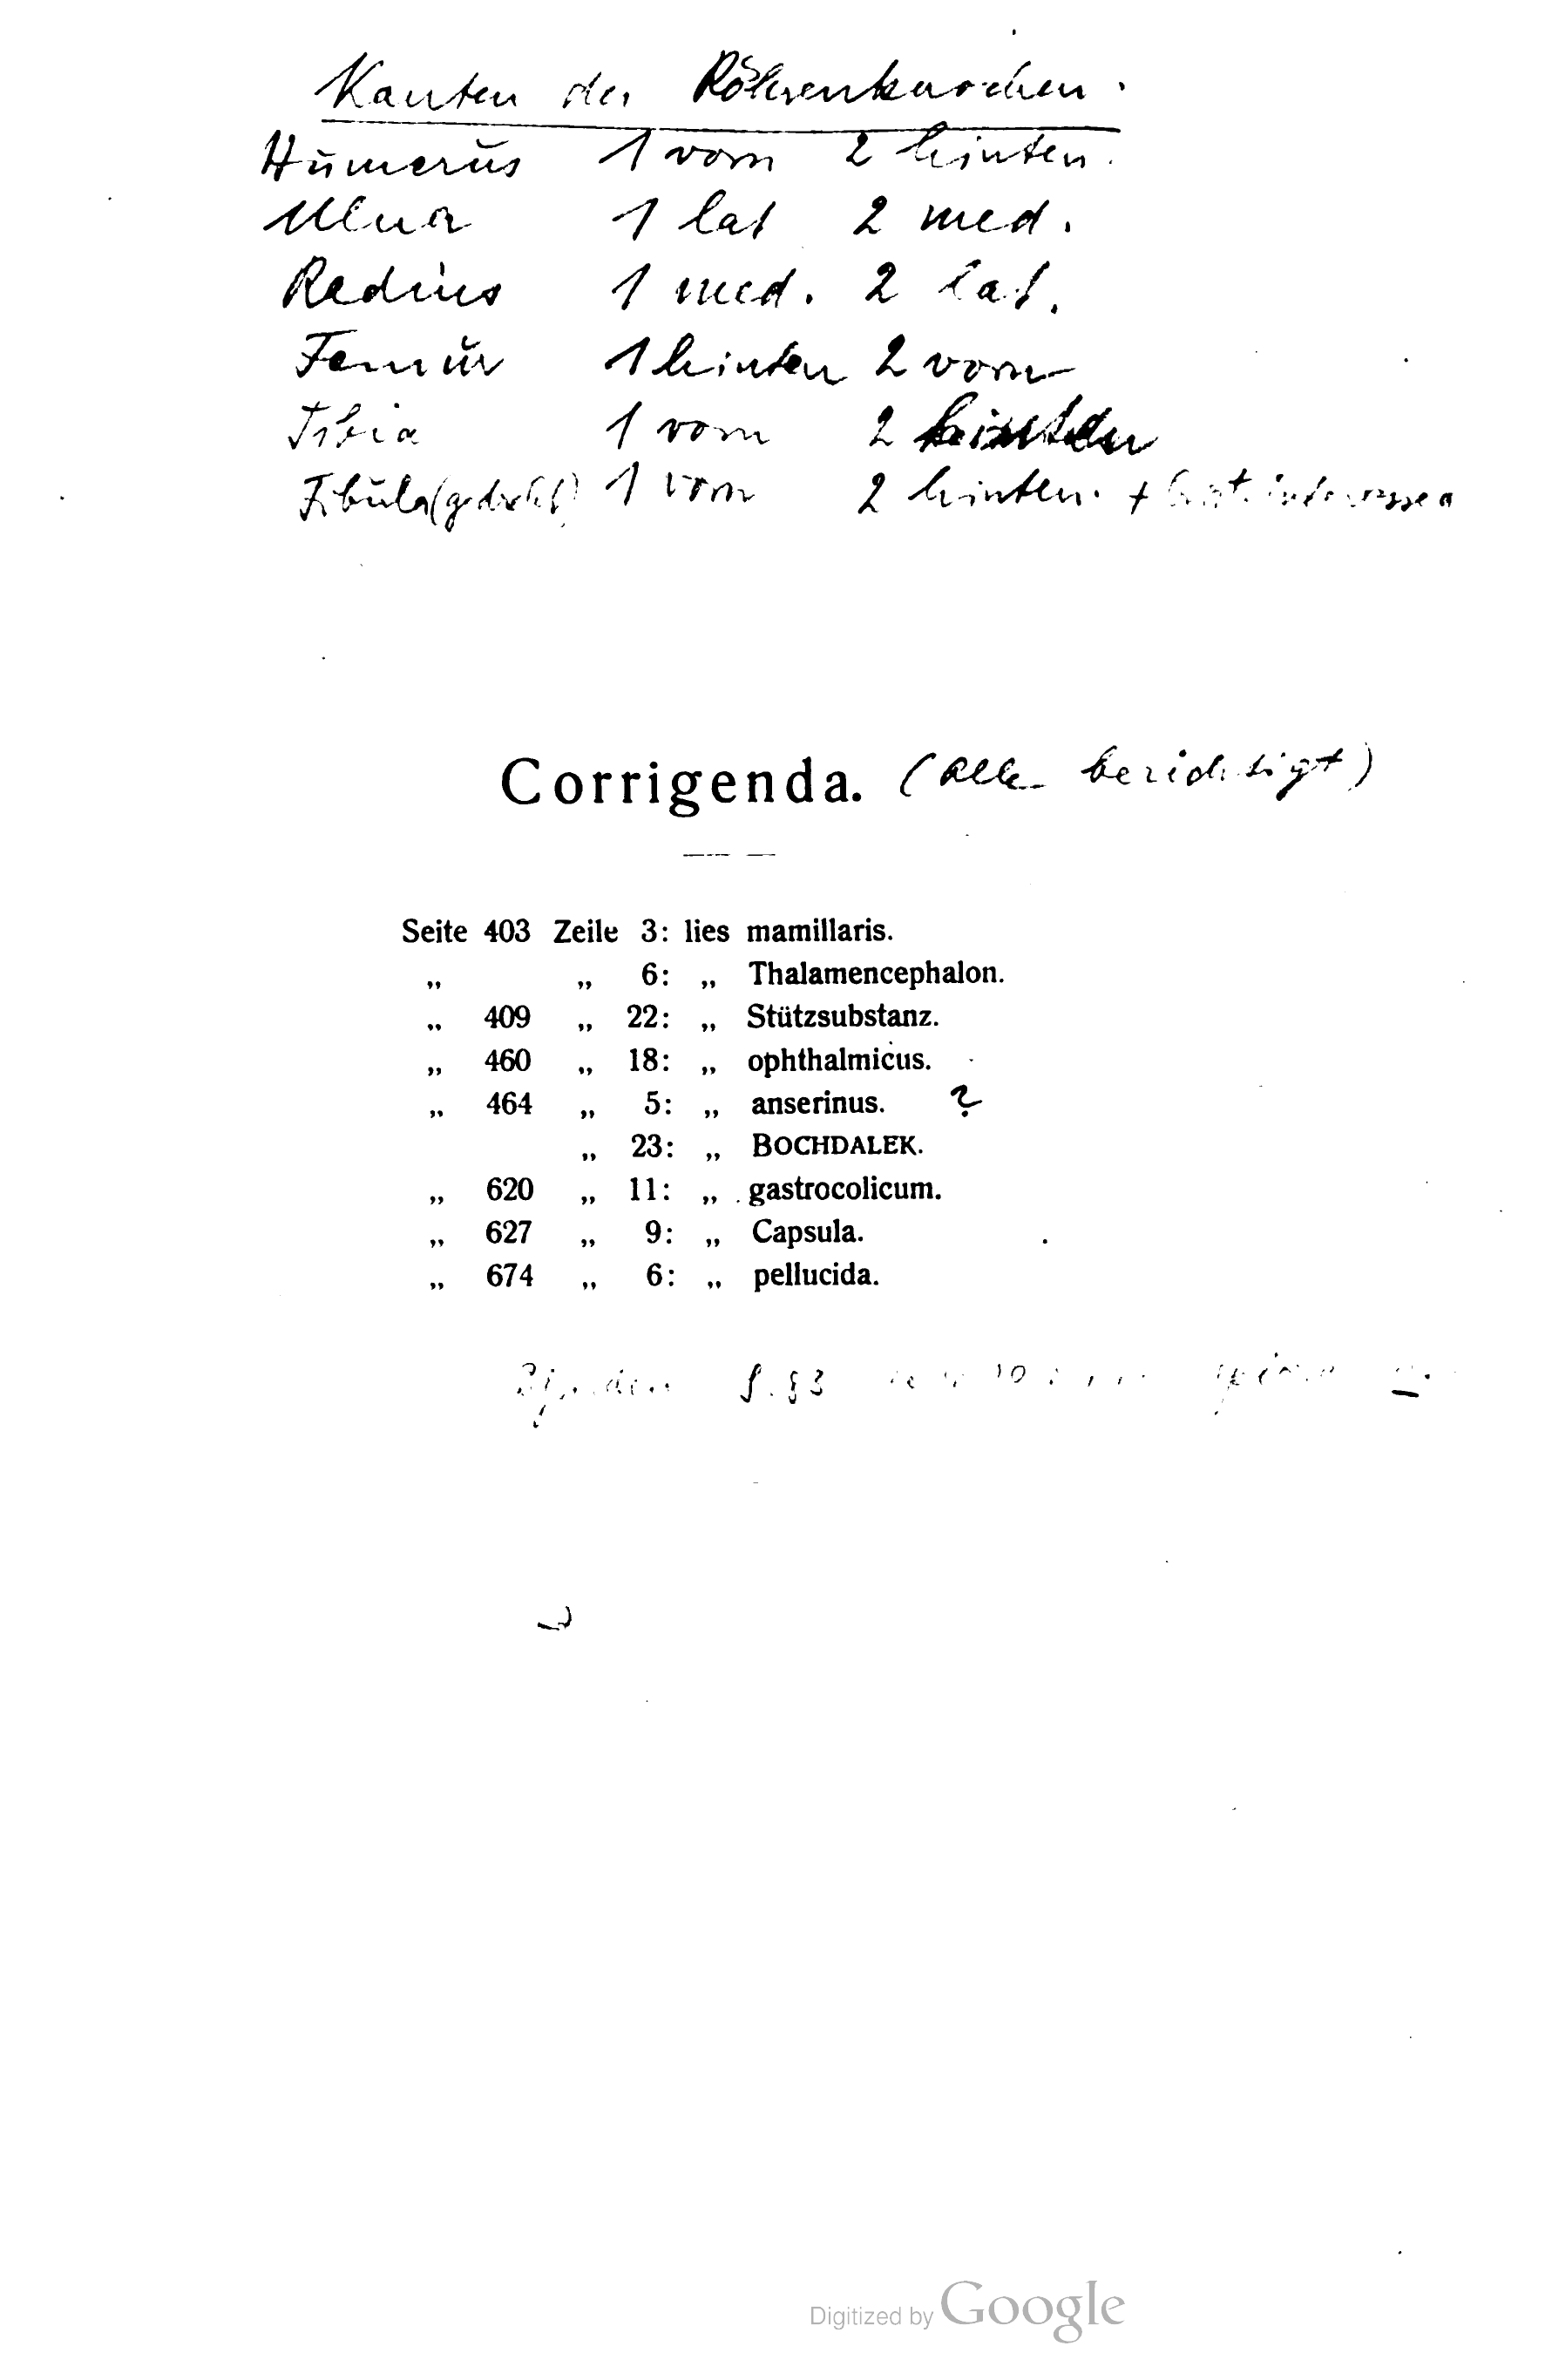 Kanten der Röhrenknochen.
Humerus 1 vorn 2 hinten.
Ulna 1 lat 2 med.
Radius 1 med. 2 lat.
Femur 1 hinten 2 vorn
Tibia 1 vorn 2 hinten
Fibula (gedreht) 1 vorn 2 hinten. + Crist. interossea
Corrigenda. (alle berichtigt)
Seite 403 Zeile 3: lies mamillaris.
„ „ 6: „ Thalamencephalon.
„ 409 „ 22: „ Stützsubstanz.
„ 460 „ 18: „ ophthalmicus.
„ 464 „ 5: „ anserinus. ?
„ 23: „ BOCHDALEK.
„ 620 „ 11: „ gastrocolicum.
„ 627 „ 9: „ Capsula.
„ 674 „ 6: „ pellucida.
Digitized by Google